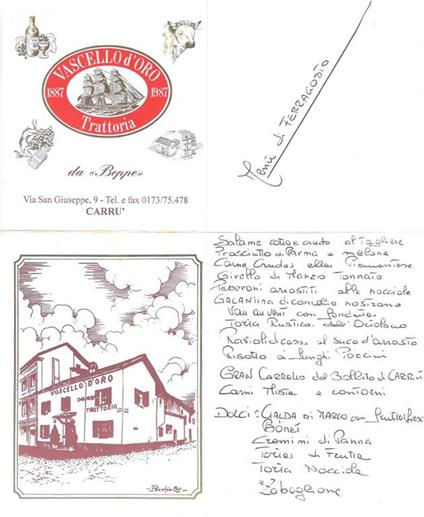 VASCELLO d'ORO
1887
1987
Trattoria
da «Beppe»
Via San Giuseppe, 9 - Tel. e fax 0173/75.478
CARRU'
Menù di FERRAGOSTO
VASCELLO D'ORO
TRATTORIA
Salame cotto e crudo al Tagliere
Prosciutto di Parma e melone
Carne Cruda alla Piemontese
Girello di Manzo Tonnato
Peperoni arrostiti alle nocciole
GALANTINA di coniglio nostrano
Vou au vent con Fonduta
Torta Rustica dell'Ortolano
Ravioli di casa al Suco d'arrosto
Risotto ai funghi Porcini
GRAN Carrello del Bollito di CARRÙ
Carni Miste e contorni
Dolci: CALDA di MARCO con
Bonet
Cremini di Panna
Torta di Frutta
Torta Nocciole
e Zabaglione